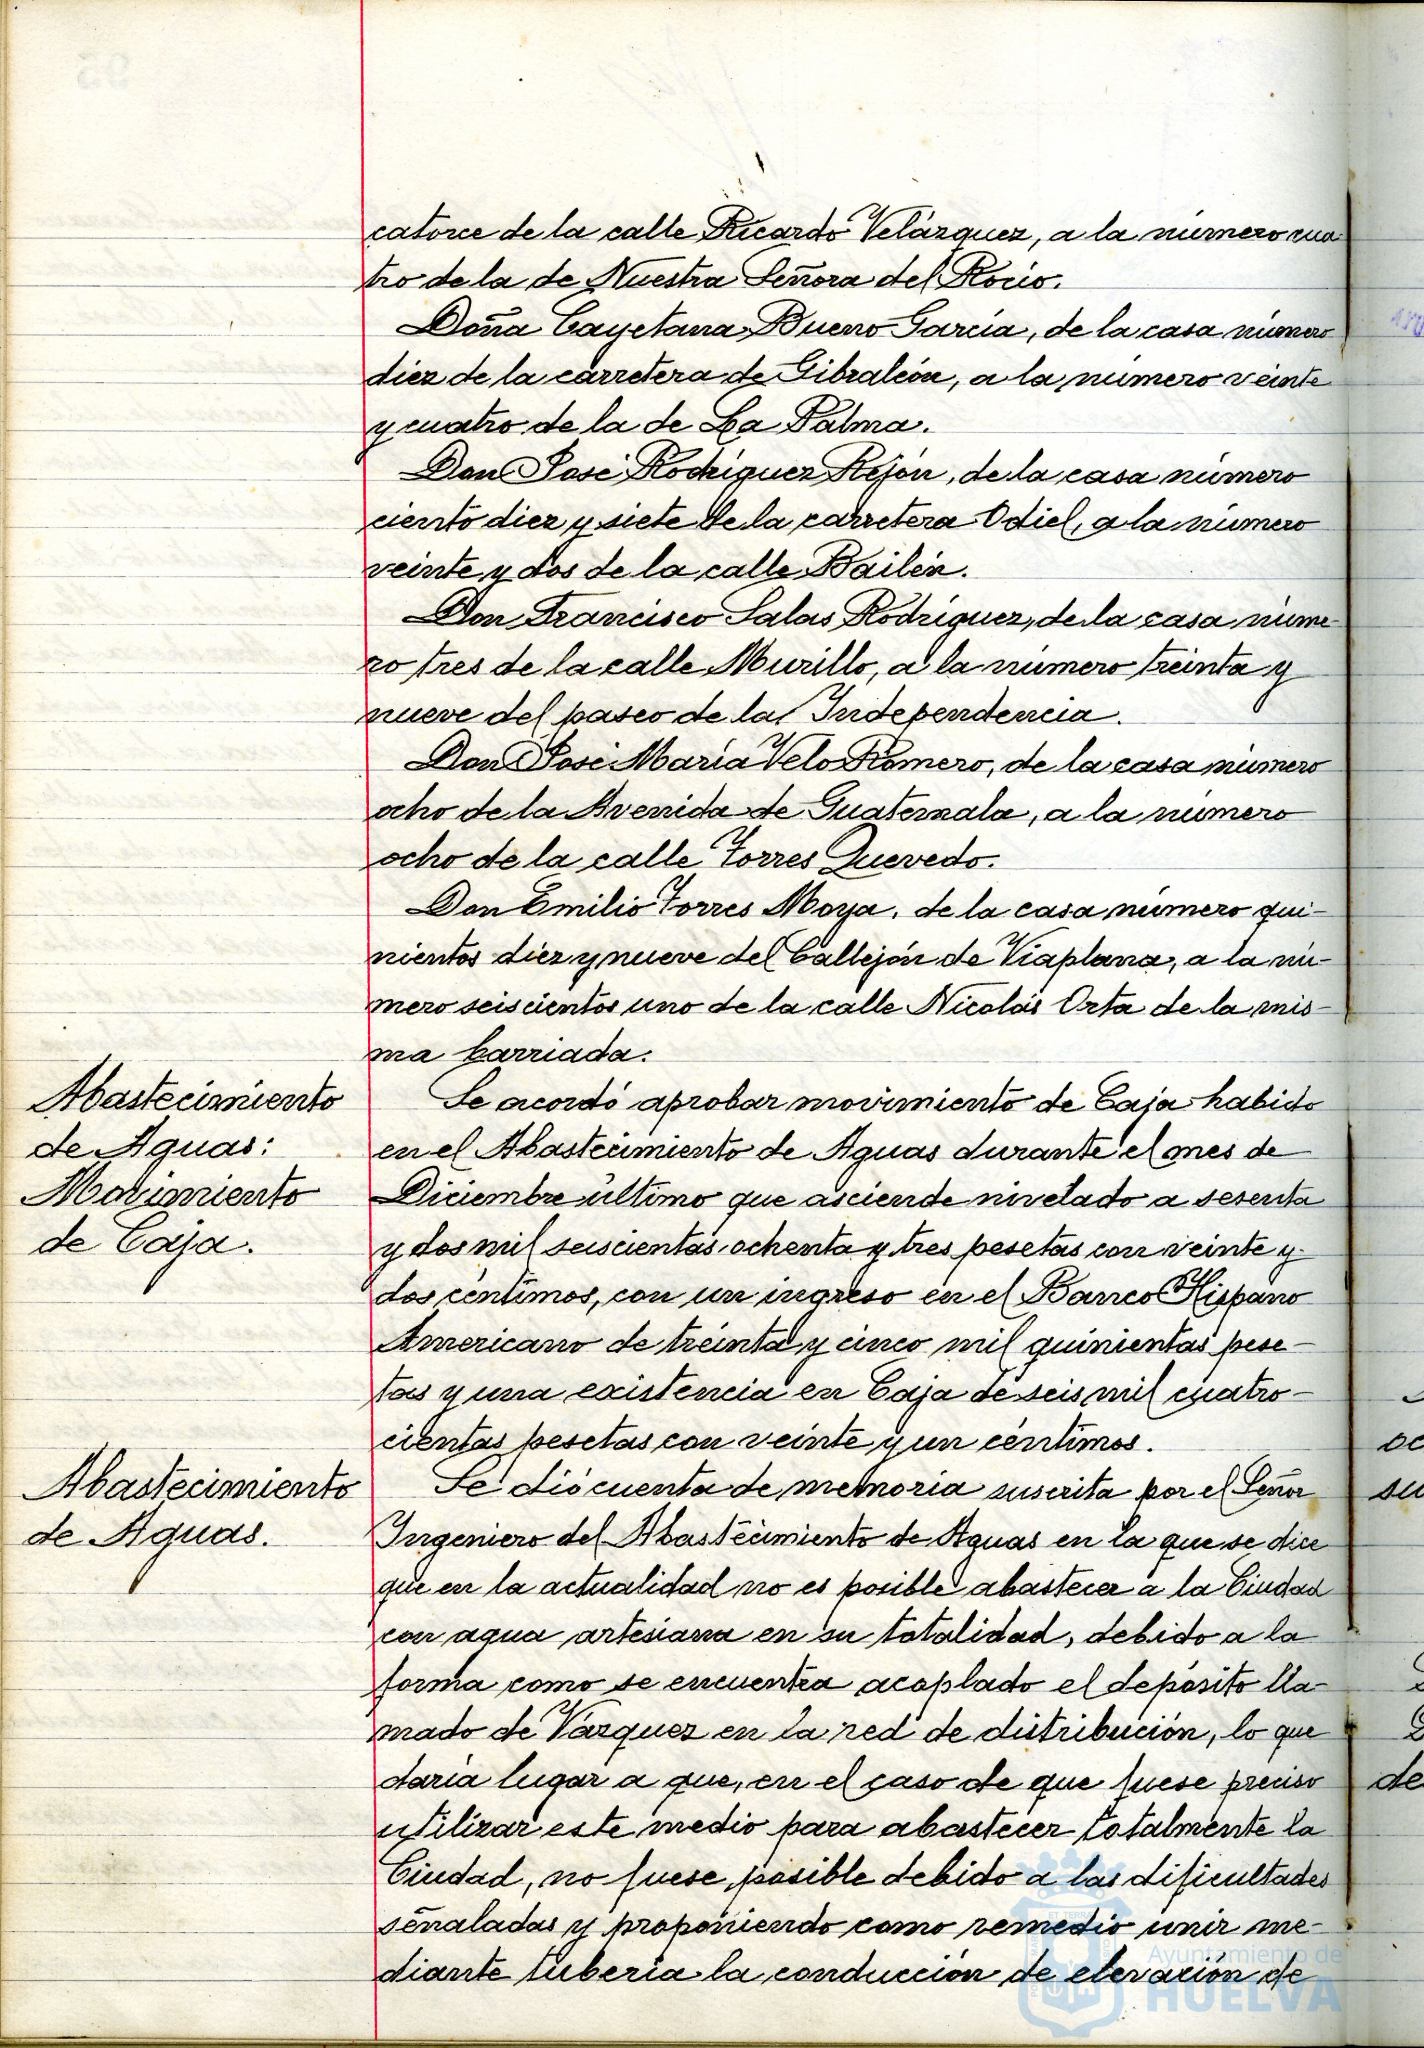 catorce de la calle Ricardo Velázquez, a la número cua
tro de la de Nuestra Señora del Rocío.
Doña Cayetana Bueno García, de la casa número
diez de la carretera de Gibraleón, a la número veinte
y cuatro de la de La Palma.
Don José Rodríguez Rejón, de la casa número
ciento diez y siete de la carretera Odiel, a la número
veinte y dos de la calle Bailén.
Don Francisco Salas Rodríguez, de la casa núme-
ro tres de la calle Murillo, a la número treinta y
nueve del paseo de la Independencia.
Don José María Velo Romero, de la casa número
ocho de la Avenida de Guatemala, a la número
ocho de la calle Torres Quevedo.
Don Emilio Torres Moya, de la casa número qui-
nientos diez y nueve del Callejón de Viaplana, a la nú-
mero seiscientos uno de la calle Nicolás Orta de la mis-
ma barriada.
Abastecimiento
de Aguas:
Movimiento
de Caja.
Se acordó aprobar movimiento de Caja habido
en el Abastecimiento de Aguas durante el mes de
Diciembre último que asciende nivelado a sesenta
y dos mil seiscientas ochenta y tres pesetas con veinte y
dos céntimos, con un ingreso en el Banco Hispano
Americano de treinta y cinco mil quinientas pese-
tas y una existencia en Caja de seis mil cuatro-
cientas pesetas con veinte y un céntimos.
Abastecimiento
de Aguas.
Se dió cuenta de memoria suscrita por el Señor
Ingeniero del Abastecimiento de Aguas en la que se dice
que en la actualidad no es posible abastecer a la Ciudad
con agua artesiana en su totalidad, debido a la
forma como se encuentra acoplado el depósito lla-
mado de Vázquez en la red de distribución, lo que
daría lugar a que, en el caso de que fuese preciso
utilizar este medio para abastecer totalmente la
Ciudad, no fuese posible debido a las dificultades
señaladas y proponiendo como remedio unir me-
diante tubería la conducción de elevación de
Ayuntamiento de
HUELVA